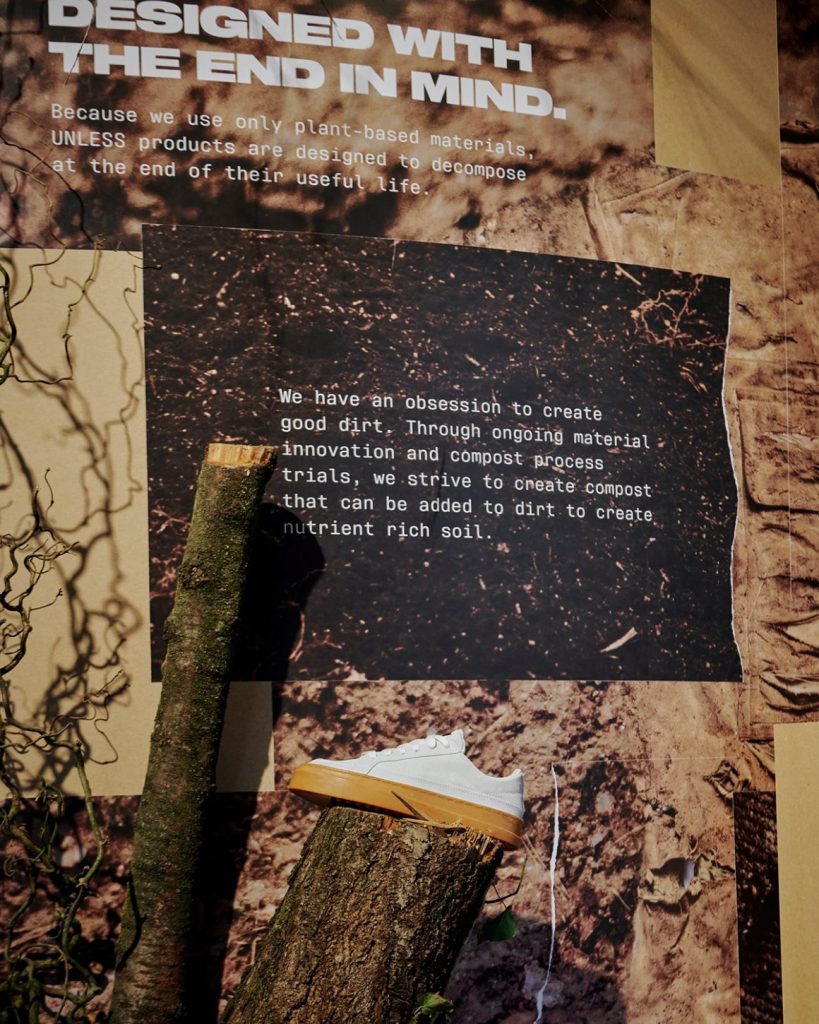 DESIGNED WITH
THE END IN MIND.
Because we use only plant-based materials,
UNLESS products are designed to decompose
at the end of their useful life.
We have an obsession to create
good dirt. Through ongoing material
innovation and compost process
trials, we strive to create compost
that can be added to dirt to create
nutrient rich soil.